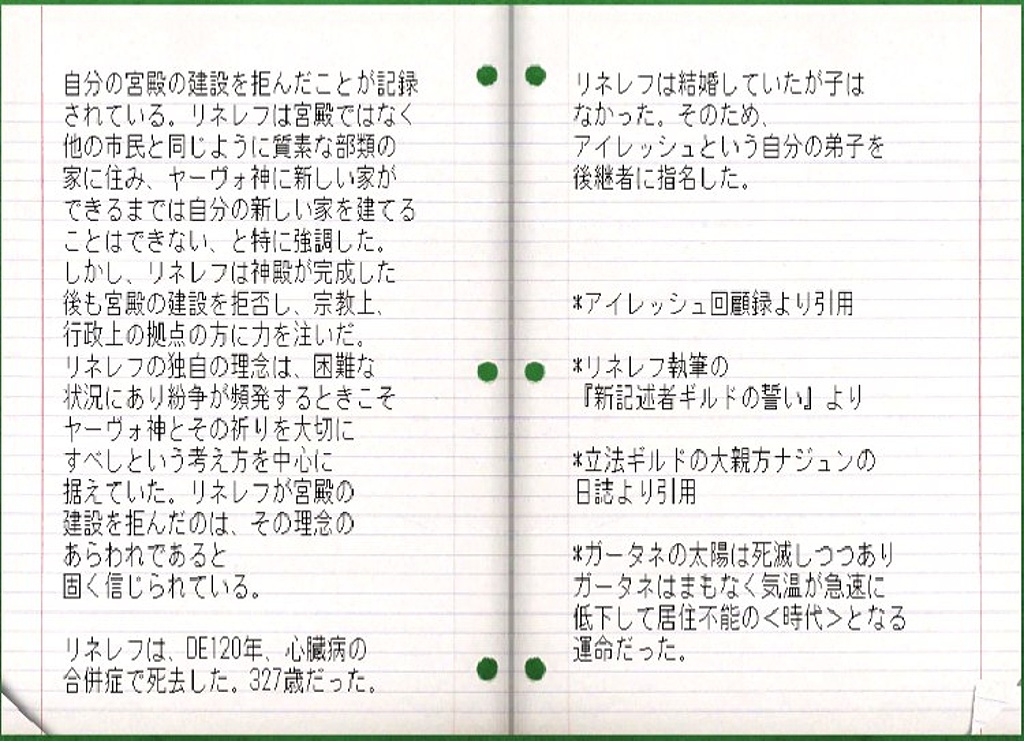 自分の宮殿の建設を拒んだことが記録
されている。リネレフは宮殿ではなく
他の市民と同じように質素な部類の
家に住み、ヤーヴォ神に新しい家が
できるまでは自分の新しい家を建てる
ことはできない、と特に強調した。
しかし、リネレフは神殿が完成した
後も宮殿の建設を拒否し、宗教上、
行政上の拠点の方に力を注いだ。
リネレフの独自の理念は、困難な
状況にあり紛争が頻発するときこそ
ヤーヴォ神とその祈りを大切に
すべしという考え方を中心に
据えていた。リネレフが宮殿の
建設を拒んだのは、その理念の
あらわれであると
固く信じられている。
リネレフは、DE120年、心臓病の
合併症で死去した。327歳だった。
リネレフは結婚していたが子は
なかった。そのため、
アイレッシュという自分の弟子を
後継者に指名した。
*アイレッシュ回顧録より引用
*リネレフ執筆の
『新記述者ギルドの誓い』より
*立法ギルドの大親方ナジュンの
日誌より引用
*ガータネの太陽は死滅しつつあり
ガータネはまもなく気温が急速に
低下して居住不能の<時代>となる
運命だった。